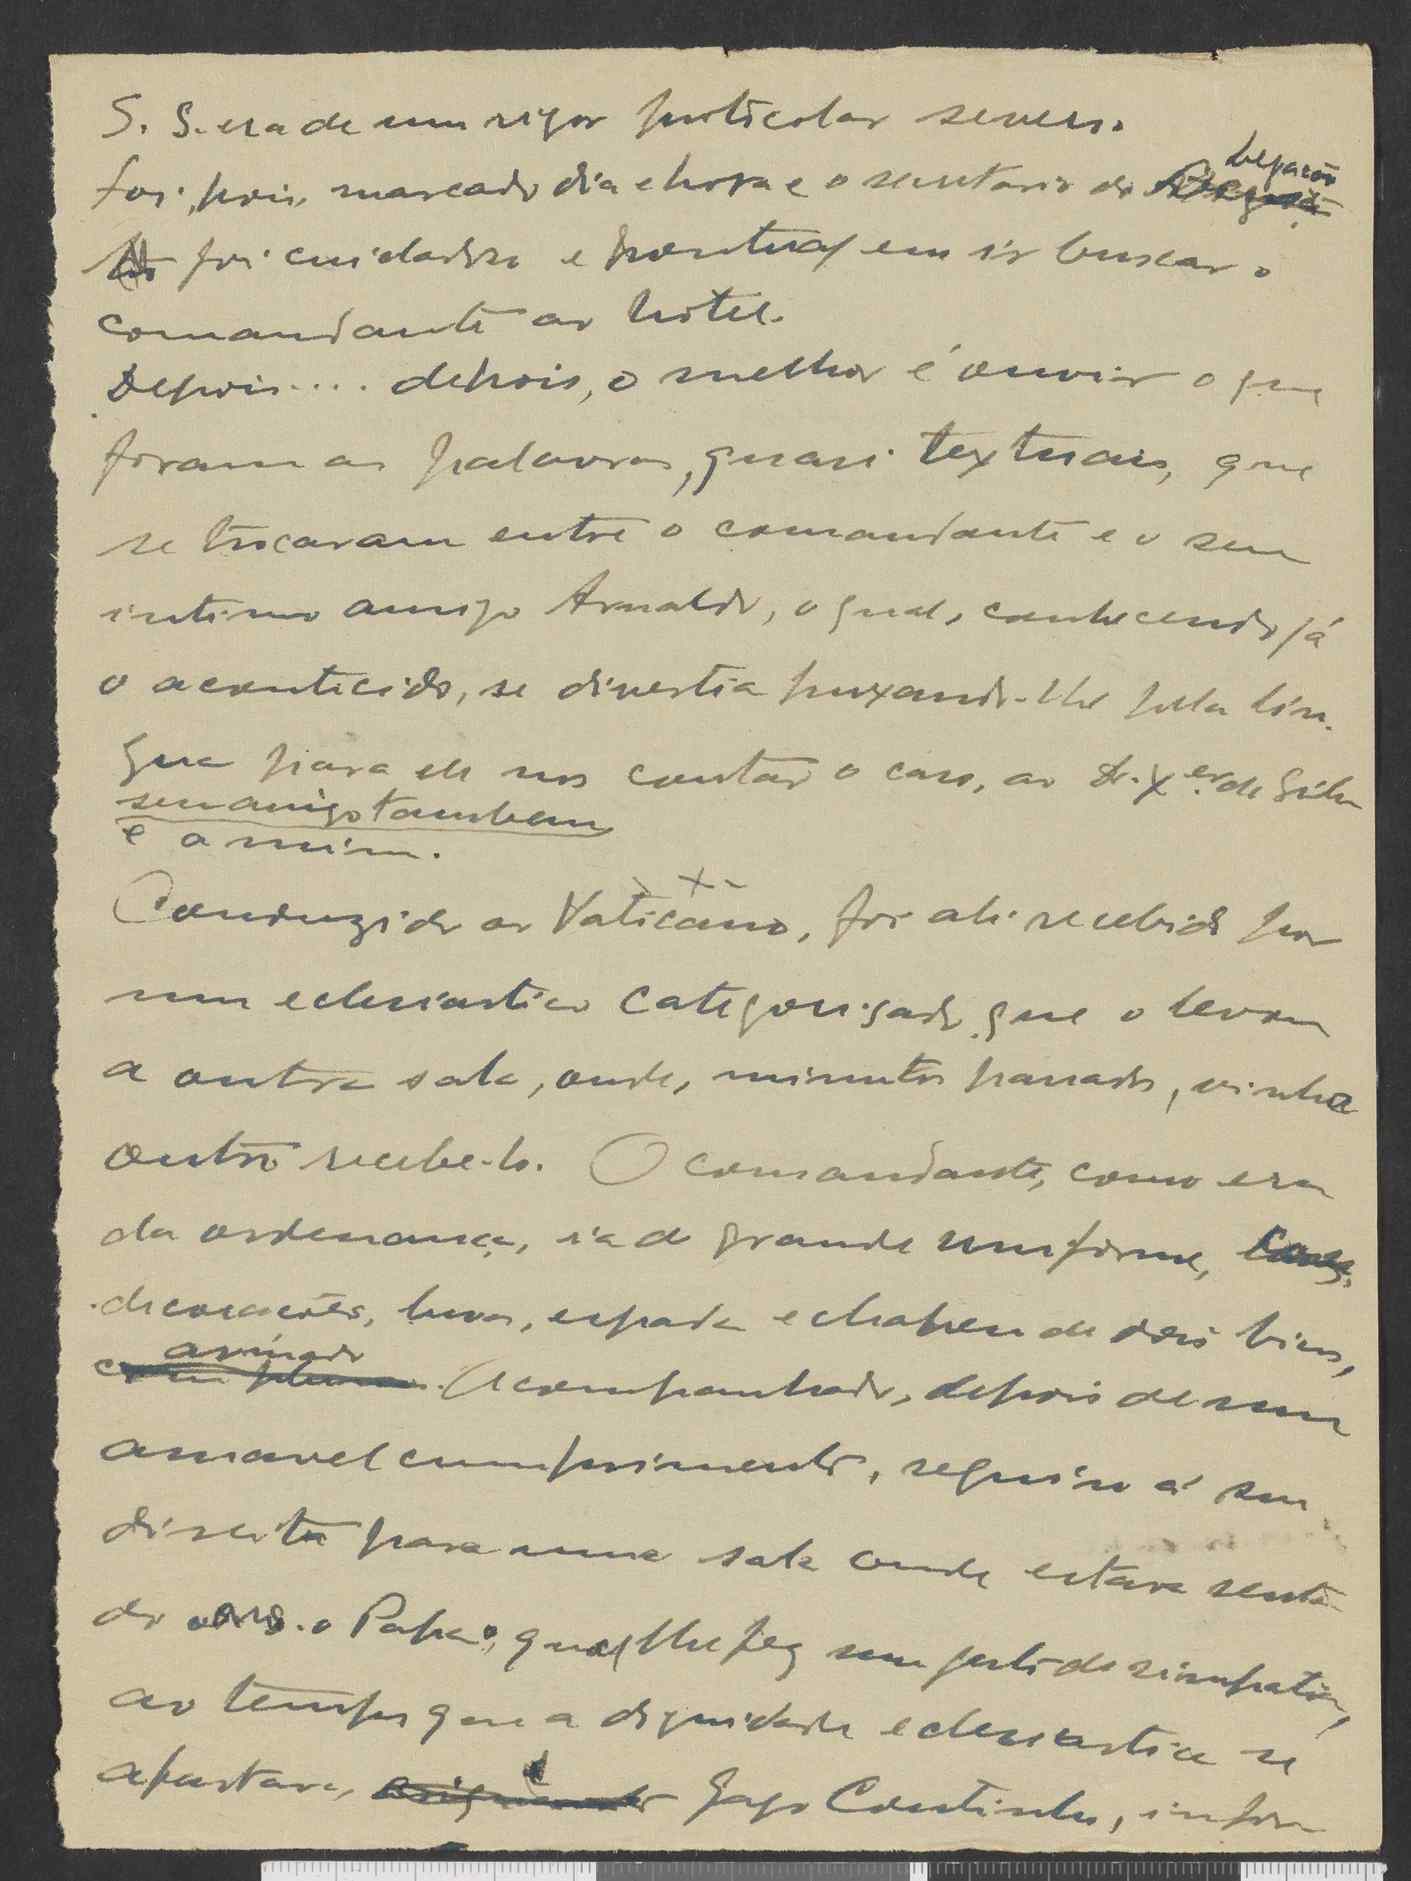 S. S. era de um rigor particolar severo.
Foi, pois, marcado dia e hora e o secretario da Legação
foi cuidadoso e pontual em ir buscar o
comandante ao hotel.
Depois.... depois, o melhor é ouvir o que
foram as palavras, quasi textuais, que
se trocaram entre o comandante e o seu
intimo amigo Arnaldo, o qual, conhecendo já
o acontecido, se divertia puxando-lhe pela lin-
gua para ele nos contar o caso, ao Dr. X.er da Silva
seu amigo tambem
e a mim.
Conduzido ao Vaticano, foi ali recebido por
um eclesiastico categorisado que o levou
a outra sala, onde, minutos passados, vinha
outro recebe-lo. O comandante, como era
da ordenança, ia de grande uniforme,
decorações, luvas, espada e chapeu de dois bicos,
armado
com plumas. Acompanhado, depois de um
amavel cumprimento, seguiu á sua
direita para uma sala onde estava senta-
do o Papa, o qual lhe fez um gesto de simpatia,
ao tempo que a dignidade eclesiastica se
afastava, Gago Coutinho, infor